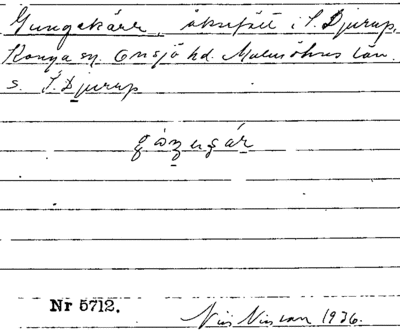 Gungakärr, åkerfält i S. Djurup,
Konga sn. Onsjö hd. Malmöhus län.
s. S. Djurup
Nr 5712.
Nils Nilsson 1926.